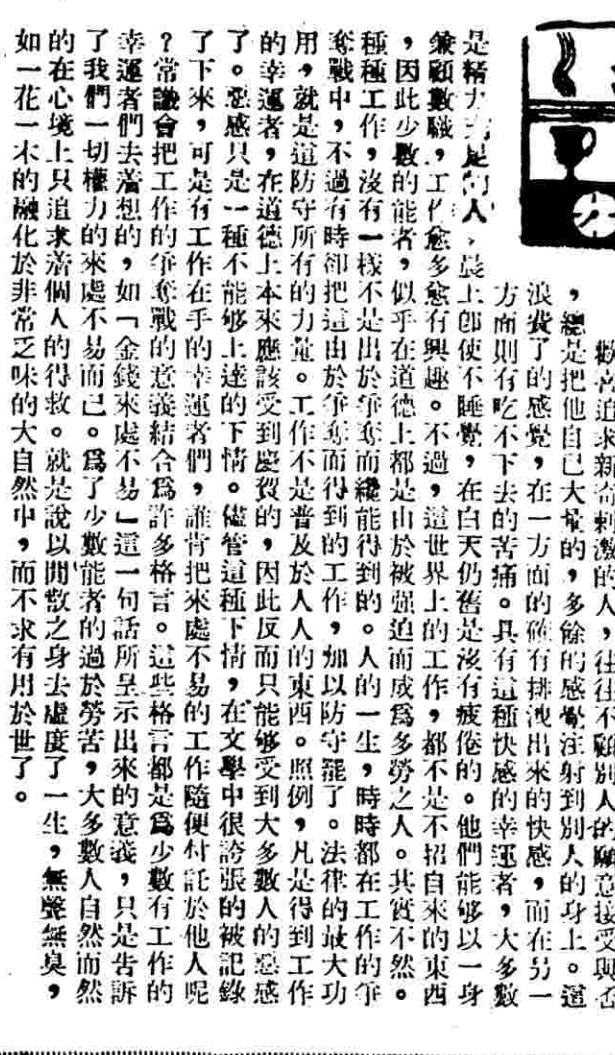 歡常追求新奇刺激的人，往往不顧別人的願意接受與否
，總是把他自己大量的，多餘的感覺注射到別人的身上。這
浪費了的感覺，在一方面的確有排洩出來的快感，而在另一
方面則有吃不下去的苦痛。具有這種快感的幸運者，大多數
是精力充足的人，晨上卽使不睡覺，在白天仍舊是沒有疲倦的。他們能够以一身
兼顧數職，工作愈多愈有興趣。不過，這世界上的工作，都不是不招自來的東西
，因此少數的能者，似乎在道德上都是由於被强迫而成爲多勞之人。其實不然。
種種工作，沒有一樣不是出於爭奪而纔能得到的。人的一生，時時都在工作的爭
奪戰中，不過有時卻把這由於爭奪而得到的工作，加以防守罷了。法律的最大功
用，就是這防守所有的力量。工作不是普及於人人的東西。照例，凡是得到工作
的幸運者，在道德上本來應該受到慶賀的，因此反而只能够受到大多數人的惡感
了。惡感只是一種不能够上達的下情。儘管這種下情，在文學中很誇張的被記錄
了下來，可是有工作在手的幸運者們，誰肯把來處不易的工作隨便付託於他人呢
？常議會把工作的爭奪戰的意義結合爲許多格言。這些格言都是爲少數有工作的
幸運者們去着想的，如「金錢來處不易」這一句話所呈示出來的意義，只是告訴
了我們一切權力的來處不易而已。爲了少數能者的過於勞苦，大多數人自然而然
的在心境上只追求着個人的得救。就是說以閒散之身去虛度了一生，無聲無臭，
如一花一木的融化於非常乏味的大自然中，而不求有用於世了。